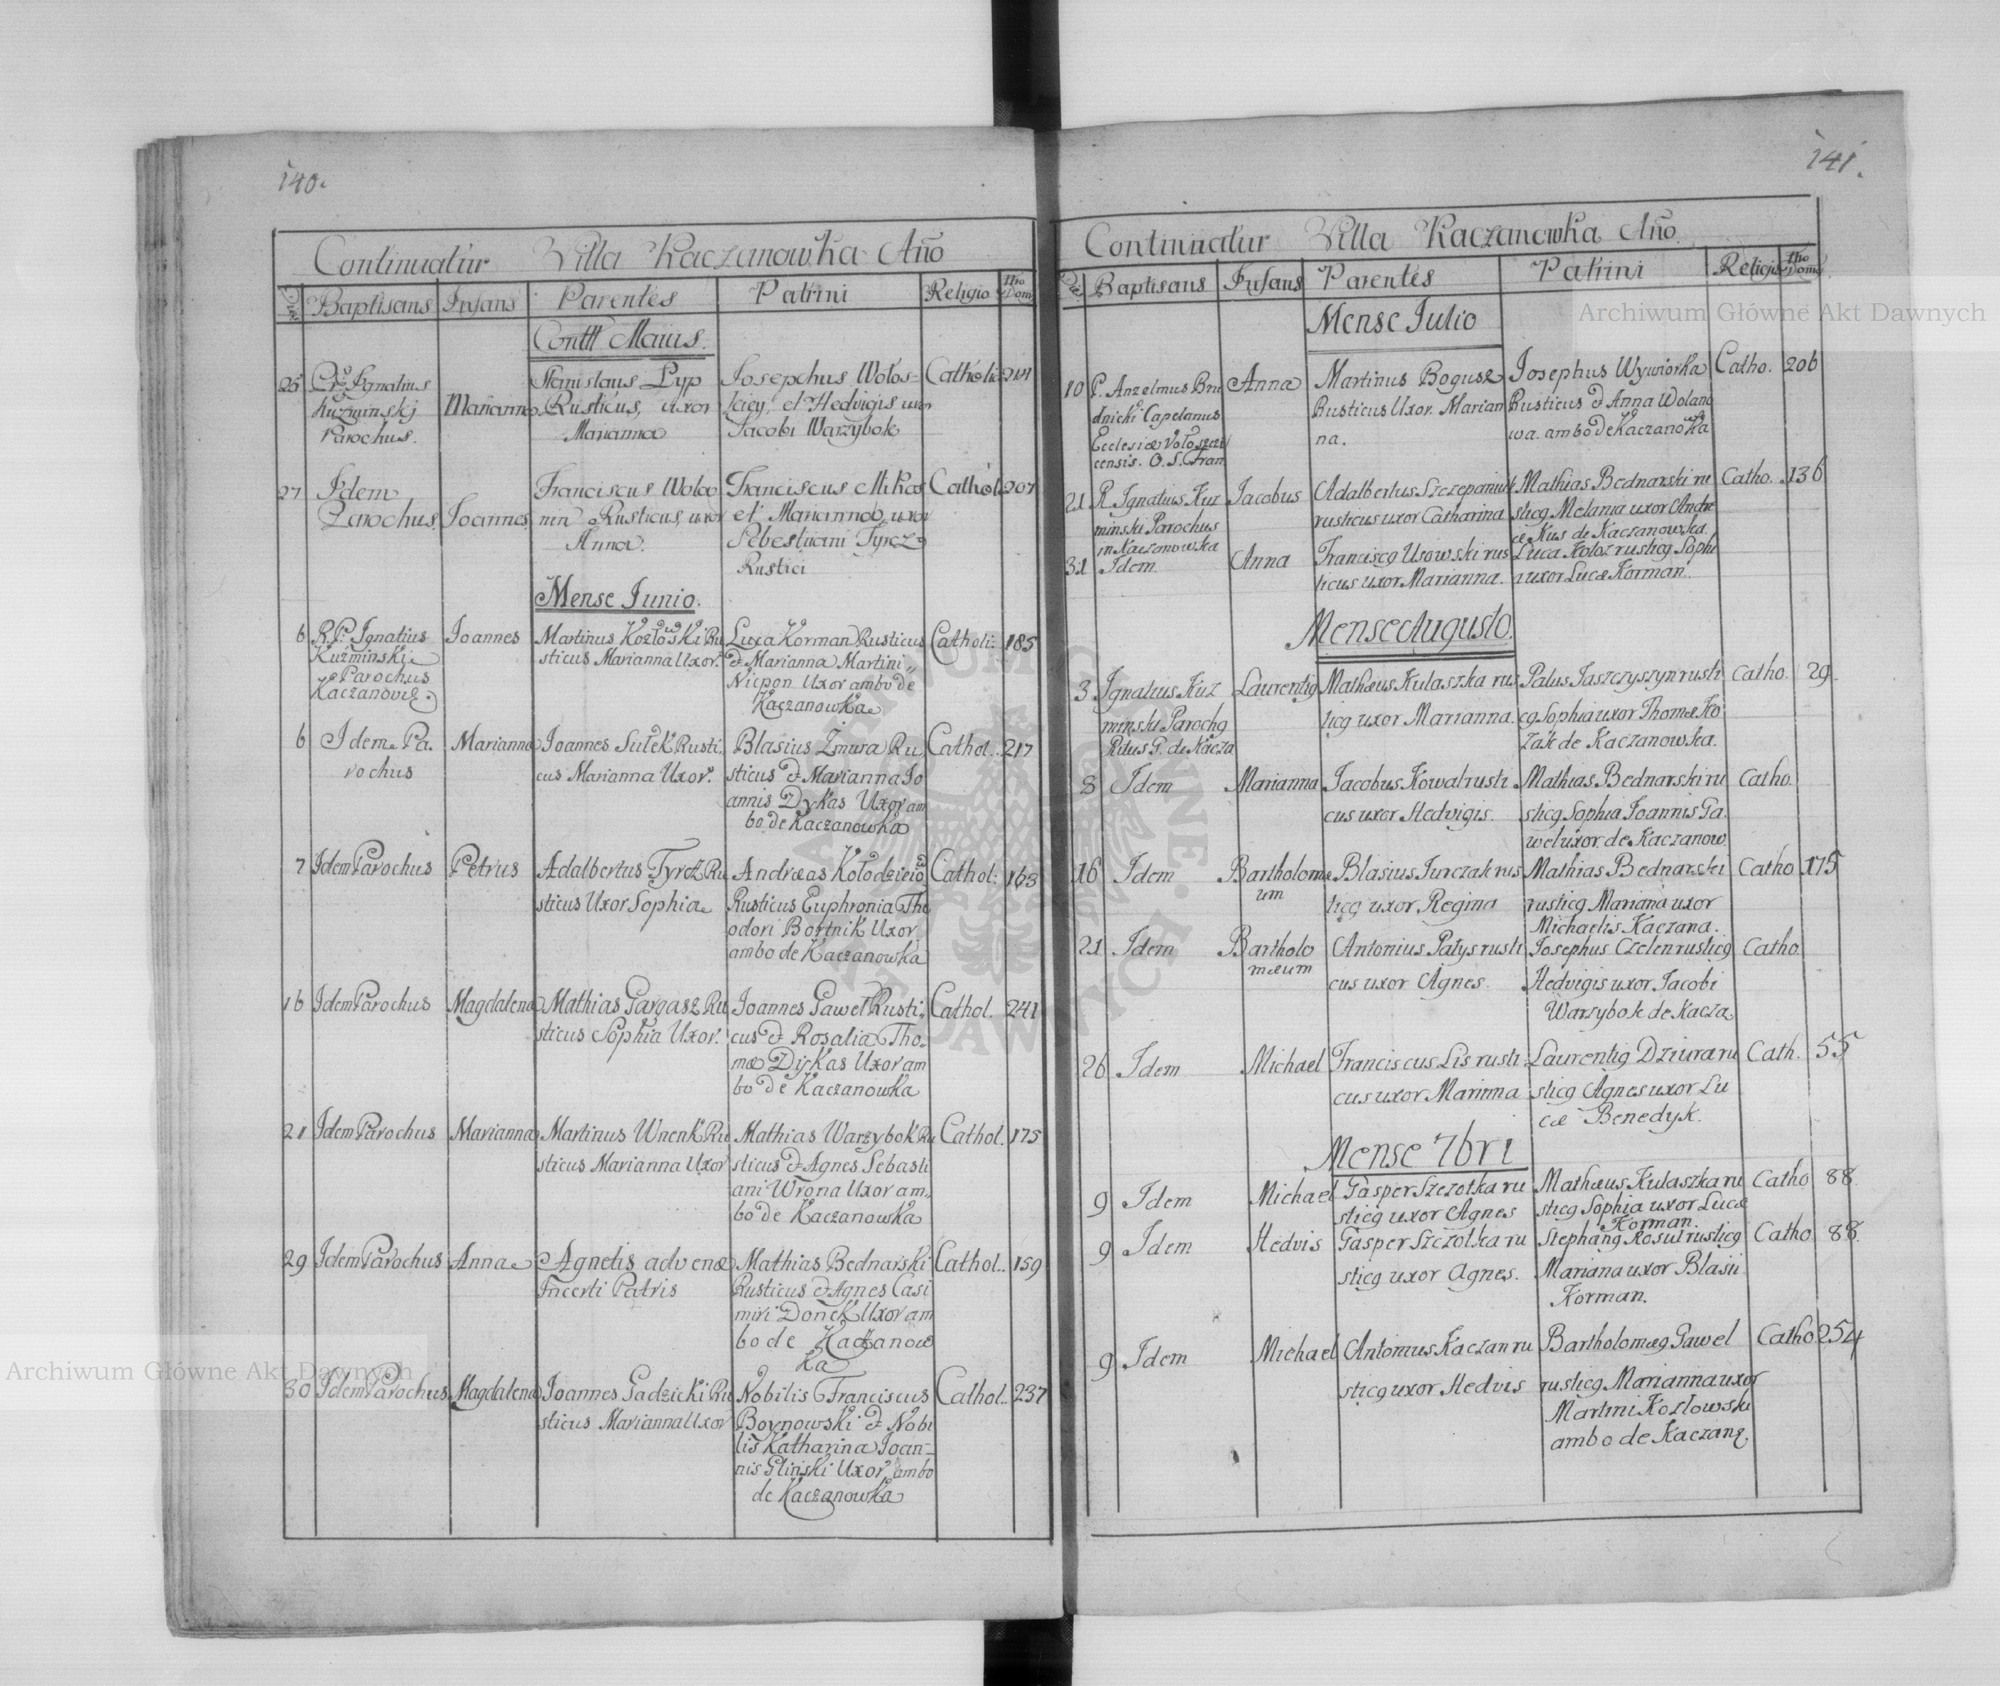 140.
Continuatur Villa Kaczanowka Año
Dies Baptisans Infans Parentes Patrini Religio Nro Dom
Contt Maius.
25 Ignatius Kuzminskj Parochus. Marianna Stanislaus Lyp Rusticus, uxor Marianna Josephus Wołos- et Hedvigis uxor Jacobi Warzybok Catholi
27 Idem Parochus Joannes Franciscus Rusticus, uxor Anna. Franciscus Mikos et Marianna uxor Sebestiani Tyrcz Rustici Cathol. 207
Mense Junio.
6 R.P. Ignatius Kuźminski Parochus Joannes Martinus Kozłowski Ru
sticus Marianna Uxor. Luca Korman Rusticus
& Marianna Martini
Niepon Uxor ambo de
Kaczanowka Catholi: 185
6 Idem Pa.
rochus Marianna Joannes Sułek Rusti.
cus Marianna Uxor. Blasius Zmura Ru
sticus & Marianna Jo
annis Dykas Uxor am
bo de Kaczanowka Cathol.. 217
7 Idem Parochus Petrus Adalbertus Tyrcz Ru
sticus Uxor Sophia Andræas Kołodzieio
Rusticus Euphronia The
odori Bortnik Uxor
ambo de Kaczanowka Cathol: 163
16 Idem Parochus Magdalena Mathias Gargasz Ru
sticus Sophia Uxor. Joannes Gaweł Rusti,
cus & Rosalia Tho-
mæ Dykas Uxor am
bo de Kaczanowka Cathol. 241
21 Idem Parochus Marianna Martinus Wnenk Ru
sticus Marianna Uxor Mathias Warzybok Ru
sticus & Agnes Sebasti
ani Wrona Uxor am,,
bo de Kaczanowka Cathol. 175
29 Idem Parochus Anna Agnetis advenæ
Incerti Patris Mathias Bednarski
Rusticus & Agnes Casi
miri Donek Uxor am
bo de Kaczanow
ka Cathol.. 159
30 Idem Parochus Magdalena Joannes Gadzicki Ru
sticus Marianna Uxor Nobilis Franciscus
Boynowski & Nobi
lis Katharina Joan-
nis Gliński Uxor ambo
de Kaczanowka Cathol.. 237
141.
Continuatur Villa Kaczanowka Año.
Dies Baptisans Infans Parentes Patrini Religio Nro Dom
Mense Julio
10 P. Anzelmus Bru
dnicki Capelanus
Ecclesiæ
censis. O. S. Fran Anna Martinus Bogusz
Rusticus Uxor. Marian
na. Josephus Wywiórka
Rusticus & Anna Wolano
wa. ambo de Kaczanowka Catho. 206
21 R. Ignatius Kuz
minski Parochus
in Kaczanowska Jacobus Adalbertus Szczepaniuk
rusticus uxor Catharina Mathias Bednarski ru
sticg Melania uxor Andre
æ Kus de Kaczanowska. Catho. 136
31 Idem. Anna Franciscg Usowski rus
ticus uxor Marianna. Luca Koloz rusticg Sophi
a uxor Lucæ Korman.
Mense Augusto.
3 Ignatius Kuz
minski Parochg
Ritus G. de Kacza Laurentig Mathæus Kulaszka rus
ticg uxor Marianna. Palus Jaszczyszyn rusti
cg Sophia uxor Thomæ Ko
zak de Kaczanowska. Catho. 29.
8 Idem Marianna Jacobus Kowal rusti
cus uxor Hedvigis. Mathias Bednarski ru
sticg Sophia Joannis Ga.
wel uxor. de Kaczanow. Catho.
16 Idem Bartholomæ
um Blasius Jurczak rus
ticg uxor Regina Mathias Bednarski
rusticg Mariana uxor
Michaelis Kaczana. Catho 175
21 Idem Bartholo
mæum Antonius Pałys rusti
cus uxor Agnes. Josephus Czelen rusticg
Hedvigis uxor Jacobi
Warzybok de Kacza. Catho.
26 Idem Michael Franciscus Lis rusti
cus uxor Marinna Laurentig Dziura ru
sticg Agnes uxor Lu
cæ Benedyk. Cath. 55
Mense 7bri
9 Idem Michael Gasper Szczotka ru
sticg uxor Agnes Mathæus Kulaszka ru
sticg Sophia uxor Lucæ
Korman. Catho 88.
9 Idem Hedvis Gasper Szczotka ru
sticg uxor Agnes. Stephang Kosul rusticg
Mariana uxor Blasii
Korman. Catho 88.
9 Idem Michael Antonius Kaczan ru
sticg uxor Hedvis Bartholomæg Gawel
rusticg Marianna uxor
Martini Kozlowski
ambo de Kaczang. Catho 254
Archiwum Główne Akt Dawnych
Archiwum Główne Akt Dawnych